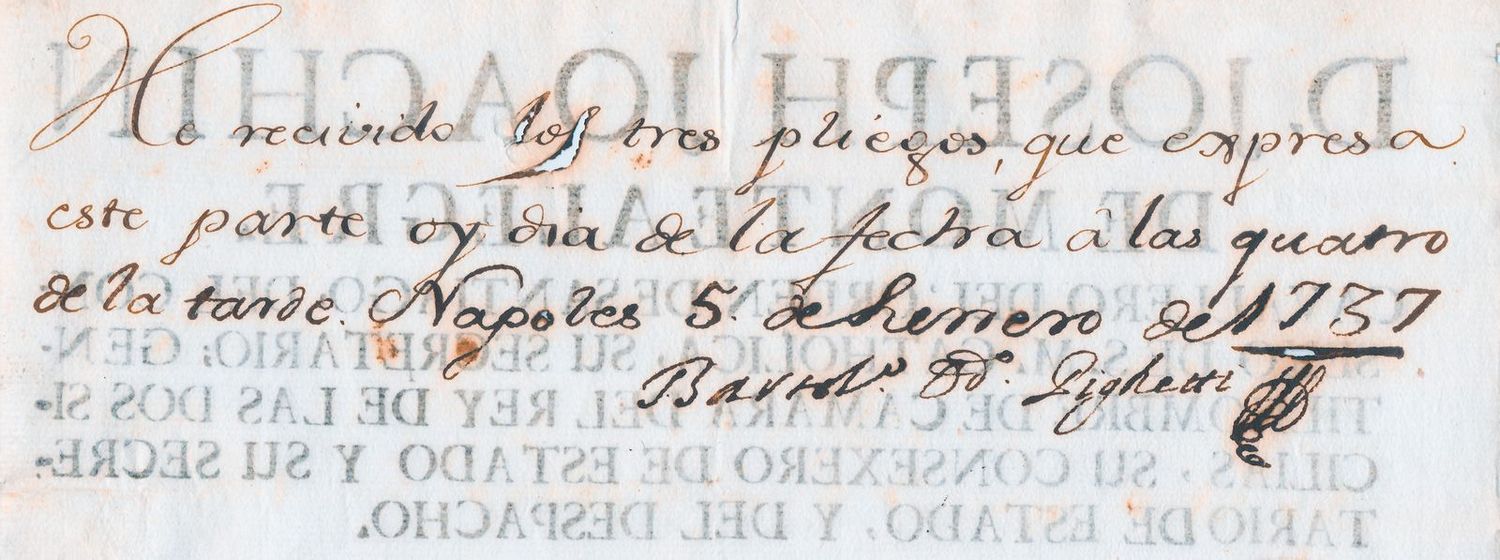 He recivido los tres pliegos, que expresa
este parte oy dia de la fecha â las quatro
de la tarde. Napoles 5. de henero de 1737
Bartol.º Pighetti
D. JOSEPH JOACHIN
DE MONTEALEGRE.
DEL ORDEN DE SANTIAGO, DEL CON-
S. M. CATHOLICA, SU SECRETARIO; GEN-
TILHOMBRE DE CAMARA DEL REY DE LAS DOS SI-
CILIAS, SU CONSEXERO DE ESTADO Y SU SECRE-
TARIO DE ESTADO, Y DEL DESPACHO.